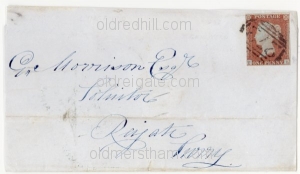 oldredhill.com
POSTAGE
Geo Morrison Esqr
oldreigate.com
ONE PENNY
Solicitor
Reigate
oldmerstham
Surrey